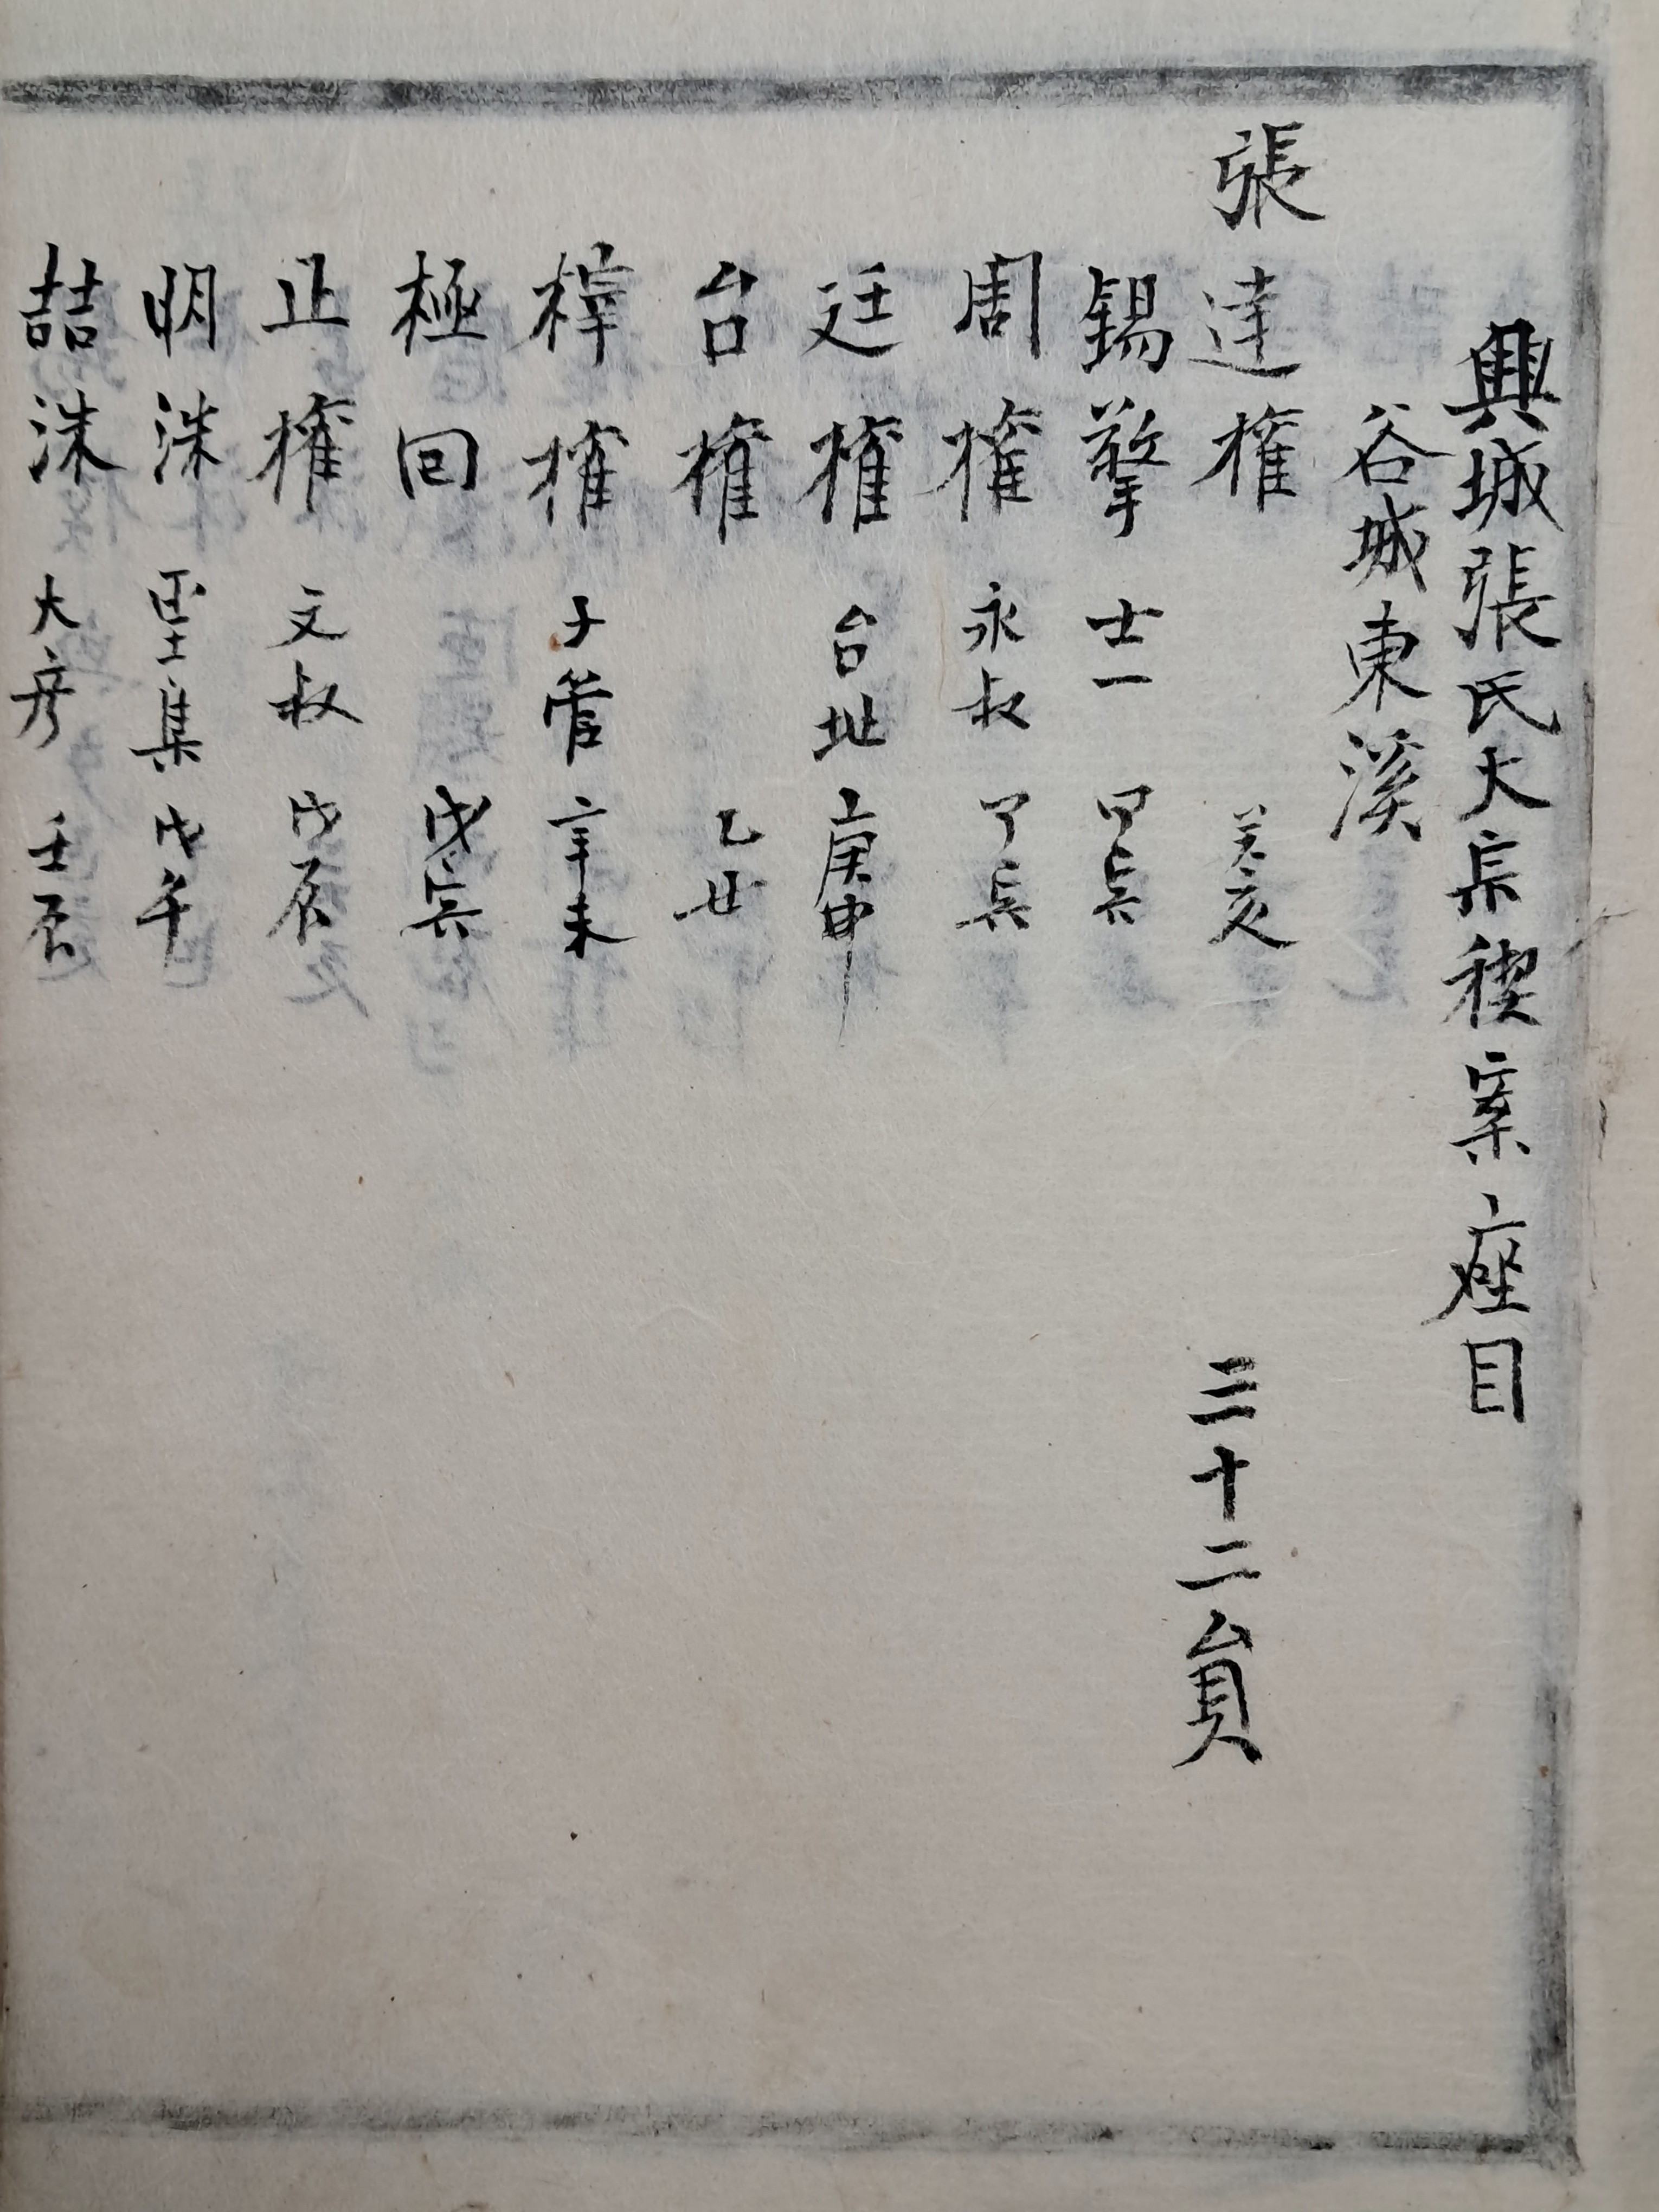 興城張氏大宗稧案座目
谷城東溪
張達權 癸亥 三十二員
錫擎 士一 甲寅
周權 永叔 丁辰
廷權 台址 庚申
台權 乙丑
梓權 子管 辛未
極回 戊寅
止權 文叔 戊辰
明洙 聖集 戊午
喆洙 大彦 壬辰